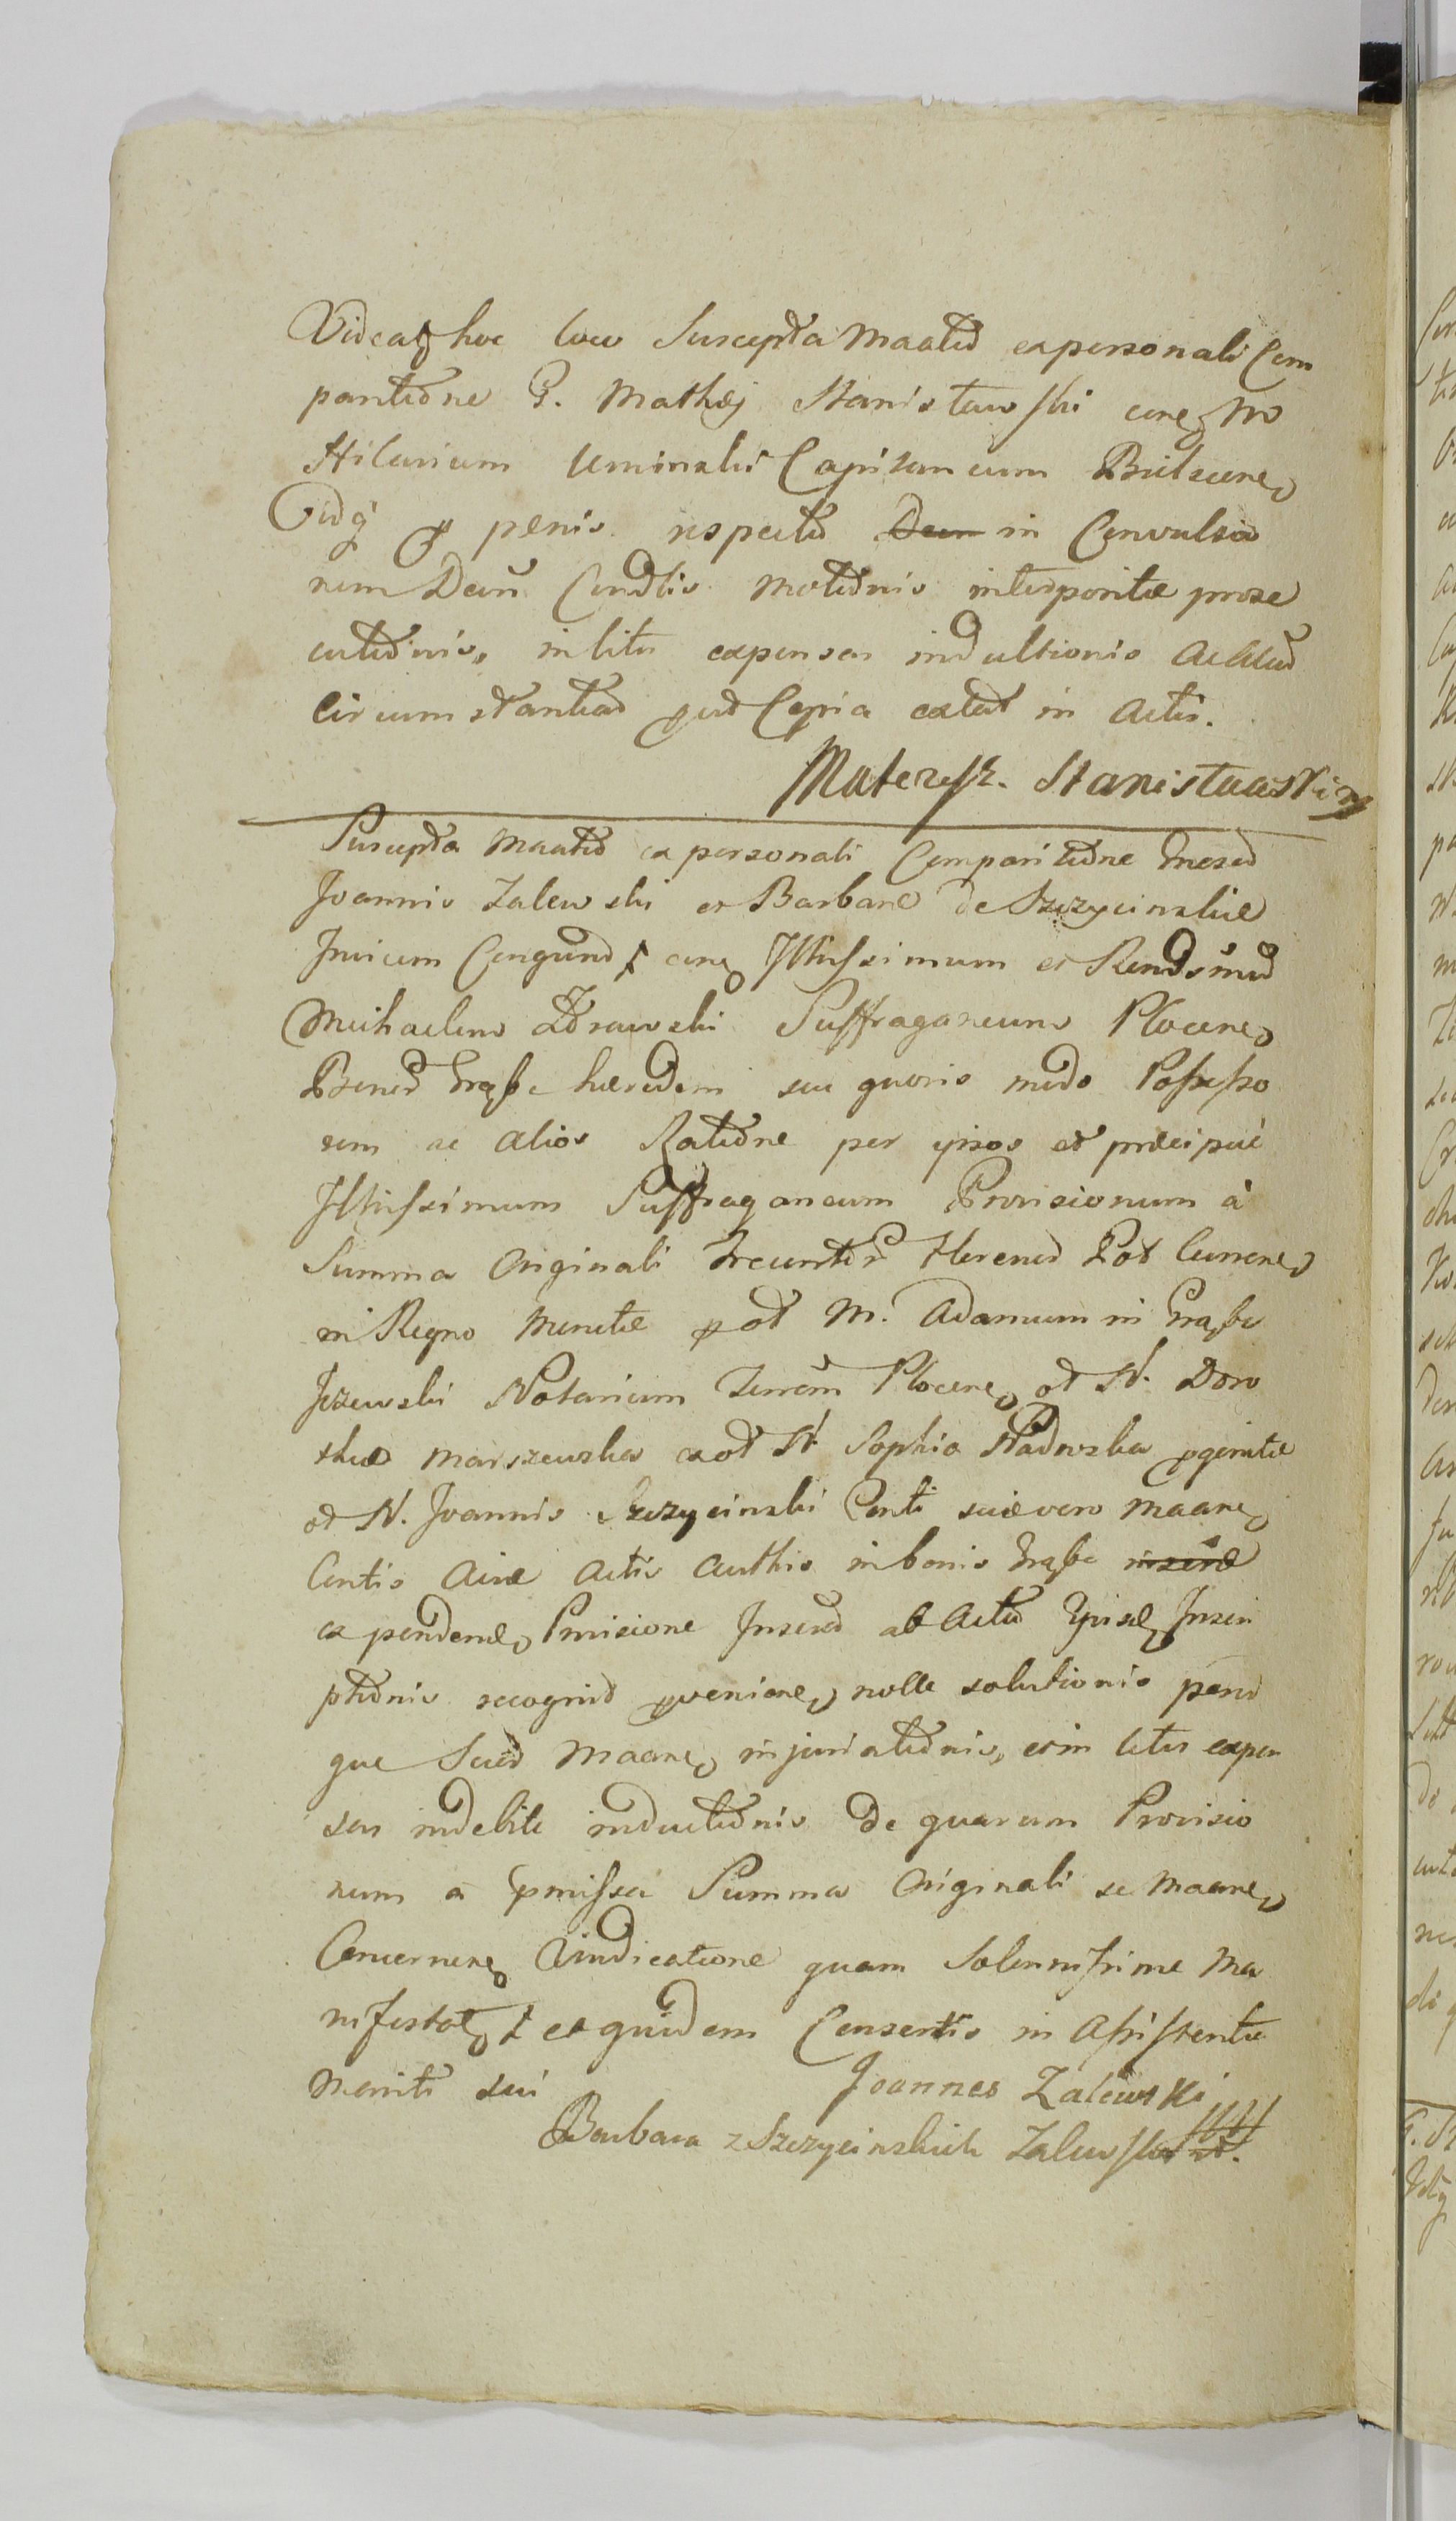 Videatq hoc loco Suscepta Maatio ex personali Com
paritione G. Mathęi Stanisławski cone, M
Hilarium Uminski Capitaneum Bielscene,
Vidq p penis respectu Decr in Convulsio
nem Decri Condlis motionis interposita prose
cutionis, in litis expensas inductionis Aclud
Circumstantiad prod Copia extat in Actis.
Mateusz. Stanisławski
Suscepta Maatio ex personali Comparitione Gnosod
Joannis Zalewski et Barbare de Szczycinskie
Invicem Congund cone Illussimum et Rendsimud
Michaelem Zdrawski Suffraganeum Plocene,
Bonor Grąbc hæredem seu quovis modo Possesso
rem ac alios Ratione per ipsos et præcipue
Illussimum Suffraganeum Provisionum à
Summa Originali Trecentor Florenod Pol Currene,
in Regno Monetæ p ol M. Adamum in Grąbc
Jezewski Notarium Terrem Plocene, ol N. Doro
theæ Marszewska ex ol N. Sophia Nadwska progenitæ
ol N. Joannis Szczycinski Conti suæ vero Maane,
Contis Aviæ Actis Authis in bonis Grąbc inscræ
ex pendene, Pmisione Inscrod ab Actu Ipsiæ, Inscri
ptionis recognit provenione, nolle solutionis peni
que Suod Maane, injuriationis, et in litis expen
sas indebite inductionis De quarum Provisio
num a pmissa Summa Originali se Maane,
Concernene, Vindicatione quam Solennissime Ma
nifestat, et quidem Consortis in Assistentia
Mariti sui
Joannes Zalewski
Barbara z Szczycinskich Zalewska